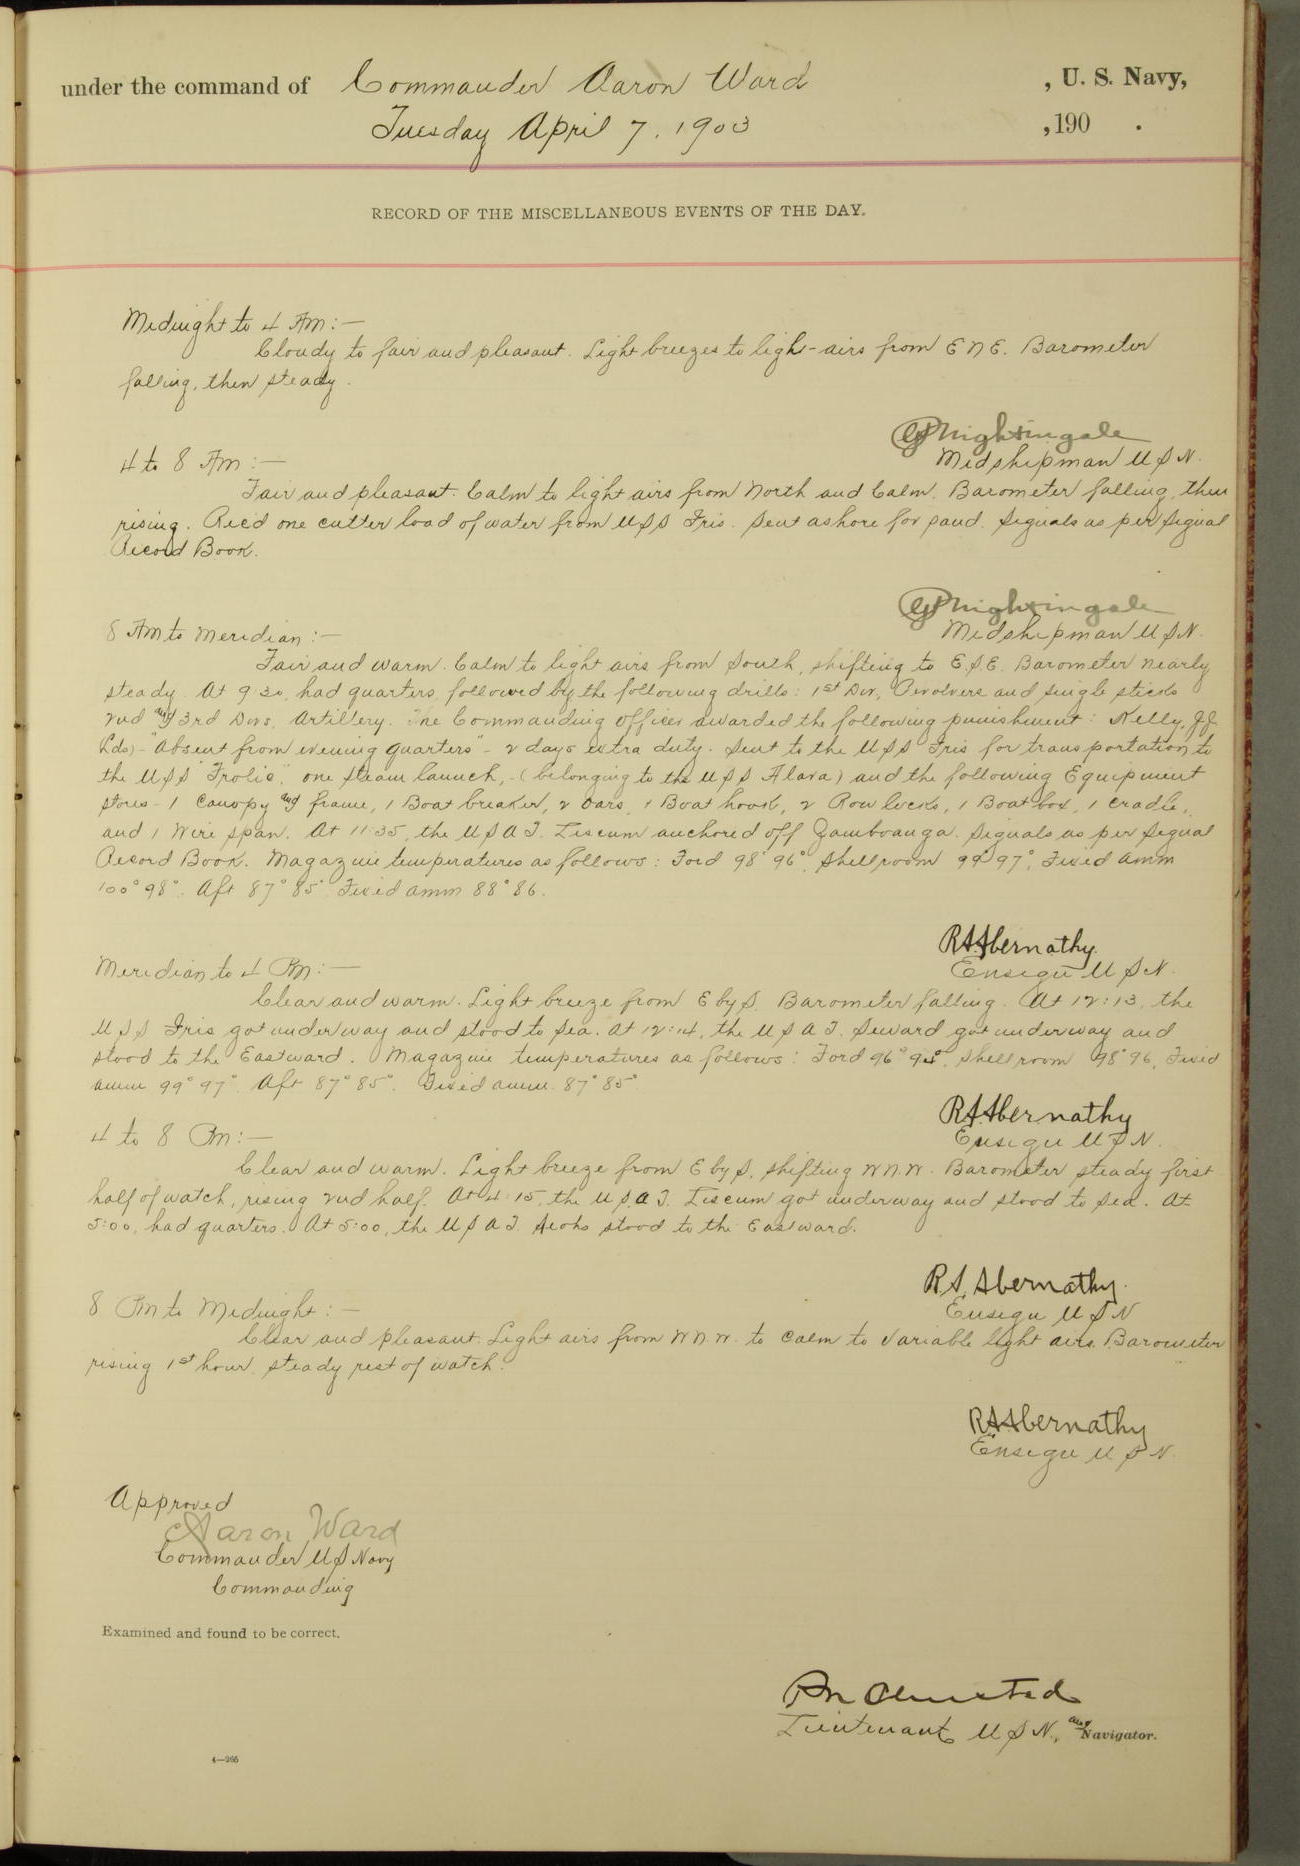 under the command of Commander Aaron Ward , U. S. Navy,
Tuesday April 7. 1903 , 190 .
RECORD OF THE MISCELLANEOUS EVENTS OF THE DAY.
Midnight to 4 AM:—
Cloudy to fair and pleasant. Light breezes to light airs from ENE. Barometer
falling, then steady.
Nightingale
Midshipman U S N.
4 to 8 AM:—
Fair and pleasant. Calm to light airs from North and Calm. Barometer falling, then
rising. Rec'd one cutter load of water from U S S Iris. Sent ashore for sand. Signals as per Signal
Record Book.
Nightingale
Midshipman U S N.
8 AM to Meridian:—
Fair and warm. Calm to light airs from South, shifting to E.S.E. Barometer nearly
steady. At 9 30, had quarters, followed by the following drills: 1st Div, Revolvers and single sticks
2nd and 3rd Divs, Artillery. The Commanding officer awarded the following punishment: Kelly, J.J.
(Lds)- "Absent from evening quarters" - 2 days extra duty. Sent to the U S S Iris for transportation to
the U S S "Frolic", one steam launch, - (belonging to the U S S Alava) and the following Equipment
stores - 1 Canopy and frame, 1 Boat breaker, 2 Oars, 1 Boat hook, 2 Row locks, 1 Boat box, 1 cradle,
and 1 Wire span. At 11:35, the U S A T. Liscum anchored off Zamboanga. Signals as per Signal
Record Book. Magazine temperatures as follows: For'd 98° 96°, Shellroom 99° 97°, Fixed amm
100° 98°. Aft 87° 85° Fixed amm 88° 86.
R S Abernathy.
Ensign U S N.
Meridian to 4 PM:—
Clear and warm. Light breeze from E by S. Barometer falling. At 12:13, the
U S S Iris got underway and stood to Sea. At 12:14, the U S A T. Seward got underway and
stood to the Eastward. Magazine temperatures as follows: For'd 96° 94°, Shell room 98° 96, Fixed
amm 99° 97°. Aft 87° 85°. Fixed amm. 87° 85°
R S Abernathy
Ensign U S N.
4 to 8 PM:—
Clear and warm. Light breeze from E by S, shifting WNW. Barometer steady first
half of watch, rising 2nd half. At 4:15, the U.S.A.T. Liscum got underway and stood to Sea. At
5:00, had quarters. At 5:00, the U S A T. stood to the Eastward.
R.S. Abernathy.
Ensign U S N
8 PM to Midnight:—
Clear and pleasant. Light airs from WNW. to calm to variable light airs. Barometer
rising 1st hour, steady rest of watch.
R S Abernathy
Ensign U S N.
Approved
Aaron Ward
Commander U S Navy
Commanding
Examined and found to be correct.
Olmsted
Lieutenant U S N., and Navigator.
4—266